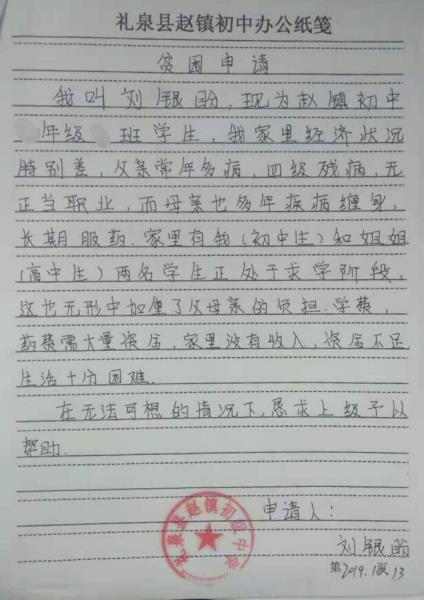 礼泉县赵镇初中办公纸笺
贫困申请
我叫刘银盼,现为赵镇初中
年级 班学生,我家里经济状况
特别差,父亲常年多病,四级残病,无
正当职业,而母亲也多年疾病缠身,
长期服药.家里有我(初中生)和姐姐
(高中生)两名学生正处于求学阶段,
这也无形中加重了父母亲的负担.学费,
药费需大量资金,家里没有收入,资金不足
生活十分困难.
在无法可想的情况下,恳求上级予以
帮助.
申请人:
刘银盼
2019. 13
礼泉县赵镇初级中学